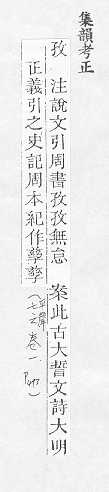 集韻考正
孜　注說文引周書孜孜無怠　案此古大誓文詩大明
正義引之史記周本紀作孳孳
卷一